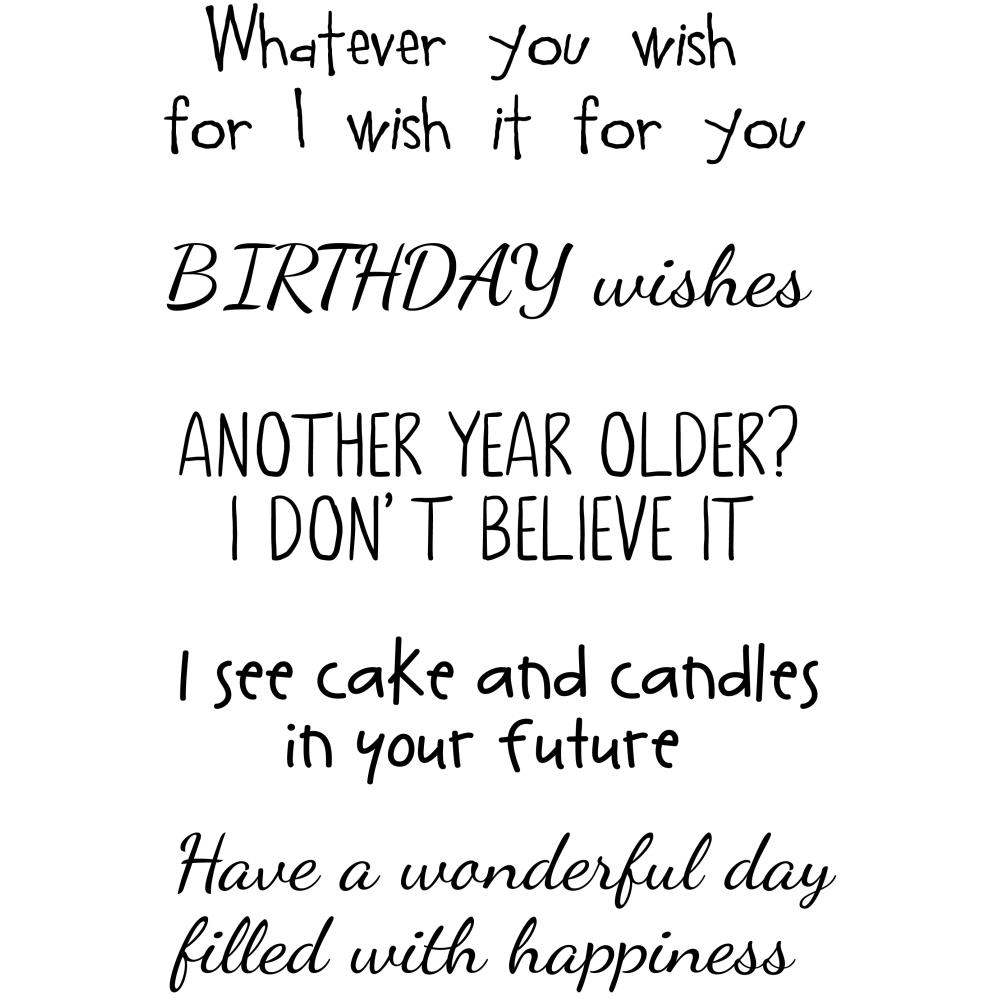 Whatever you wish
for I wish it for you
BIRTHDAY wishes
ANOTHER YEAR OLDER?
I DON'T BELIEVE IT
I see cake and candles
in your future
Have a wonderful day
filled with happiness